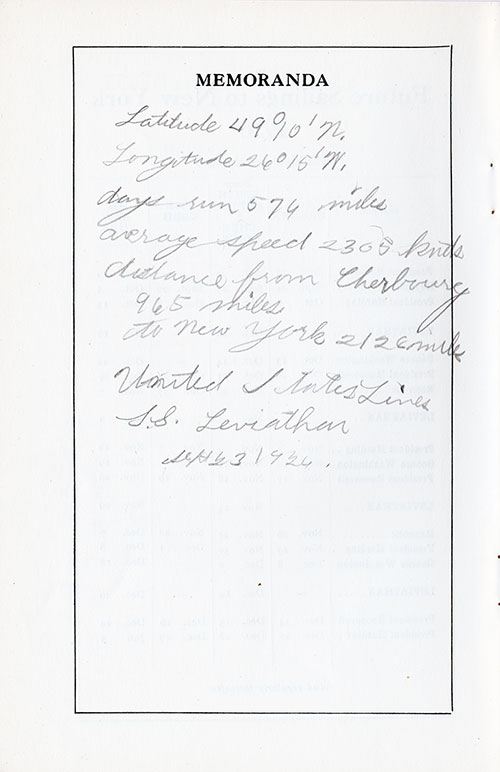 MEMORANDA
Latitude 49°10' N.
Longitude 26°15' W.
days run 576 miles
average speed 2305 knts
distance from Cherbourg
965 miles
to New York 2126 miles
United States Lines
S.S. Leviathan